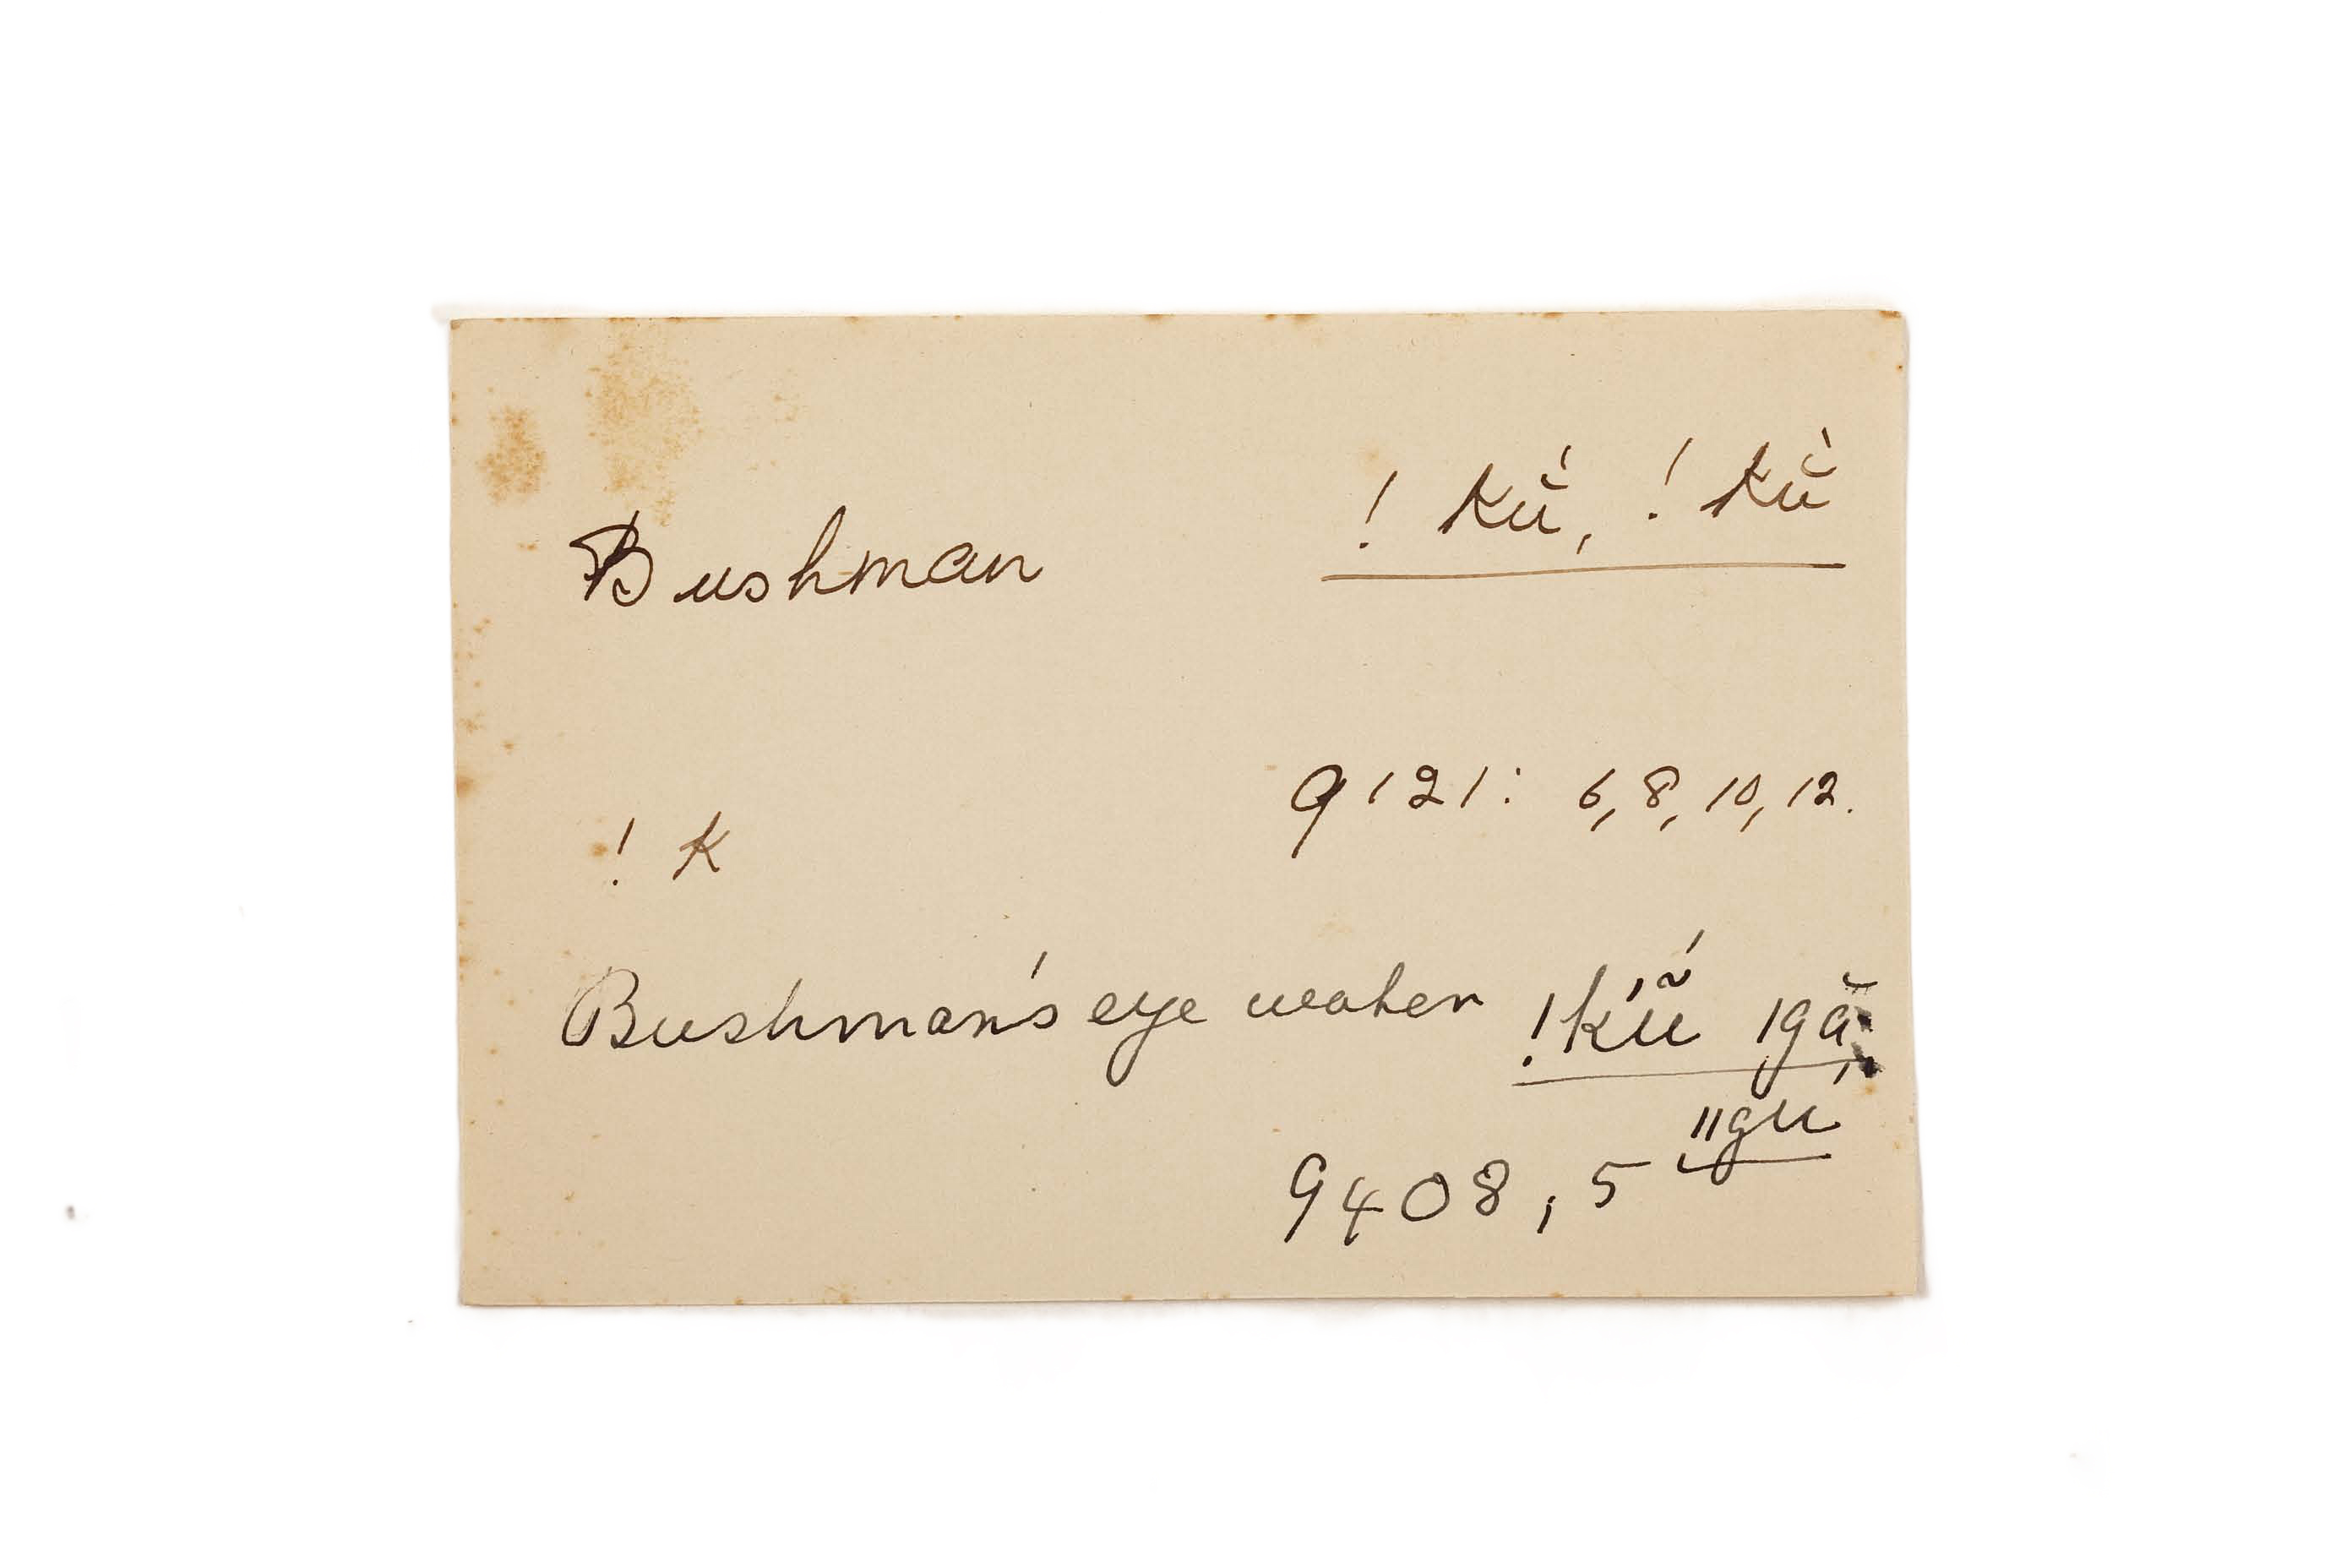 ! kŭ́, ! kŭ̀
Bushman
9121: 6, 8, 10, 12.
! k
Bushman's eye water !k'ṹ ǀgă,
ǁgu
9408, 5